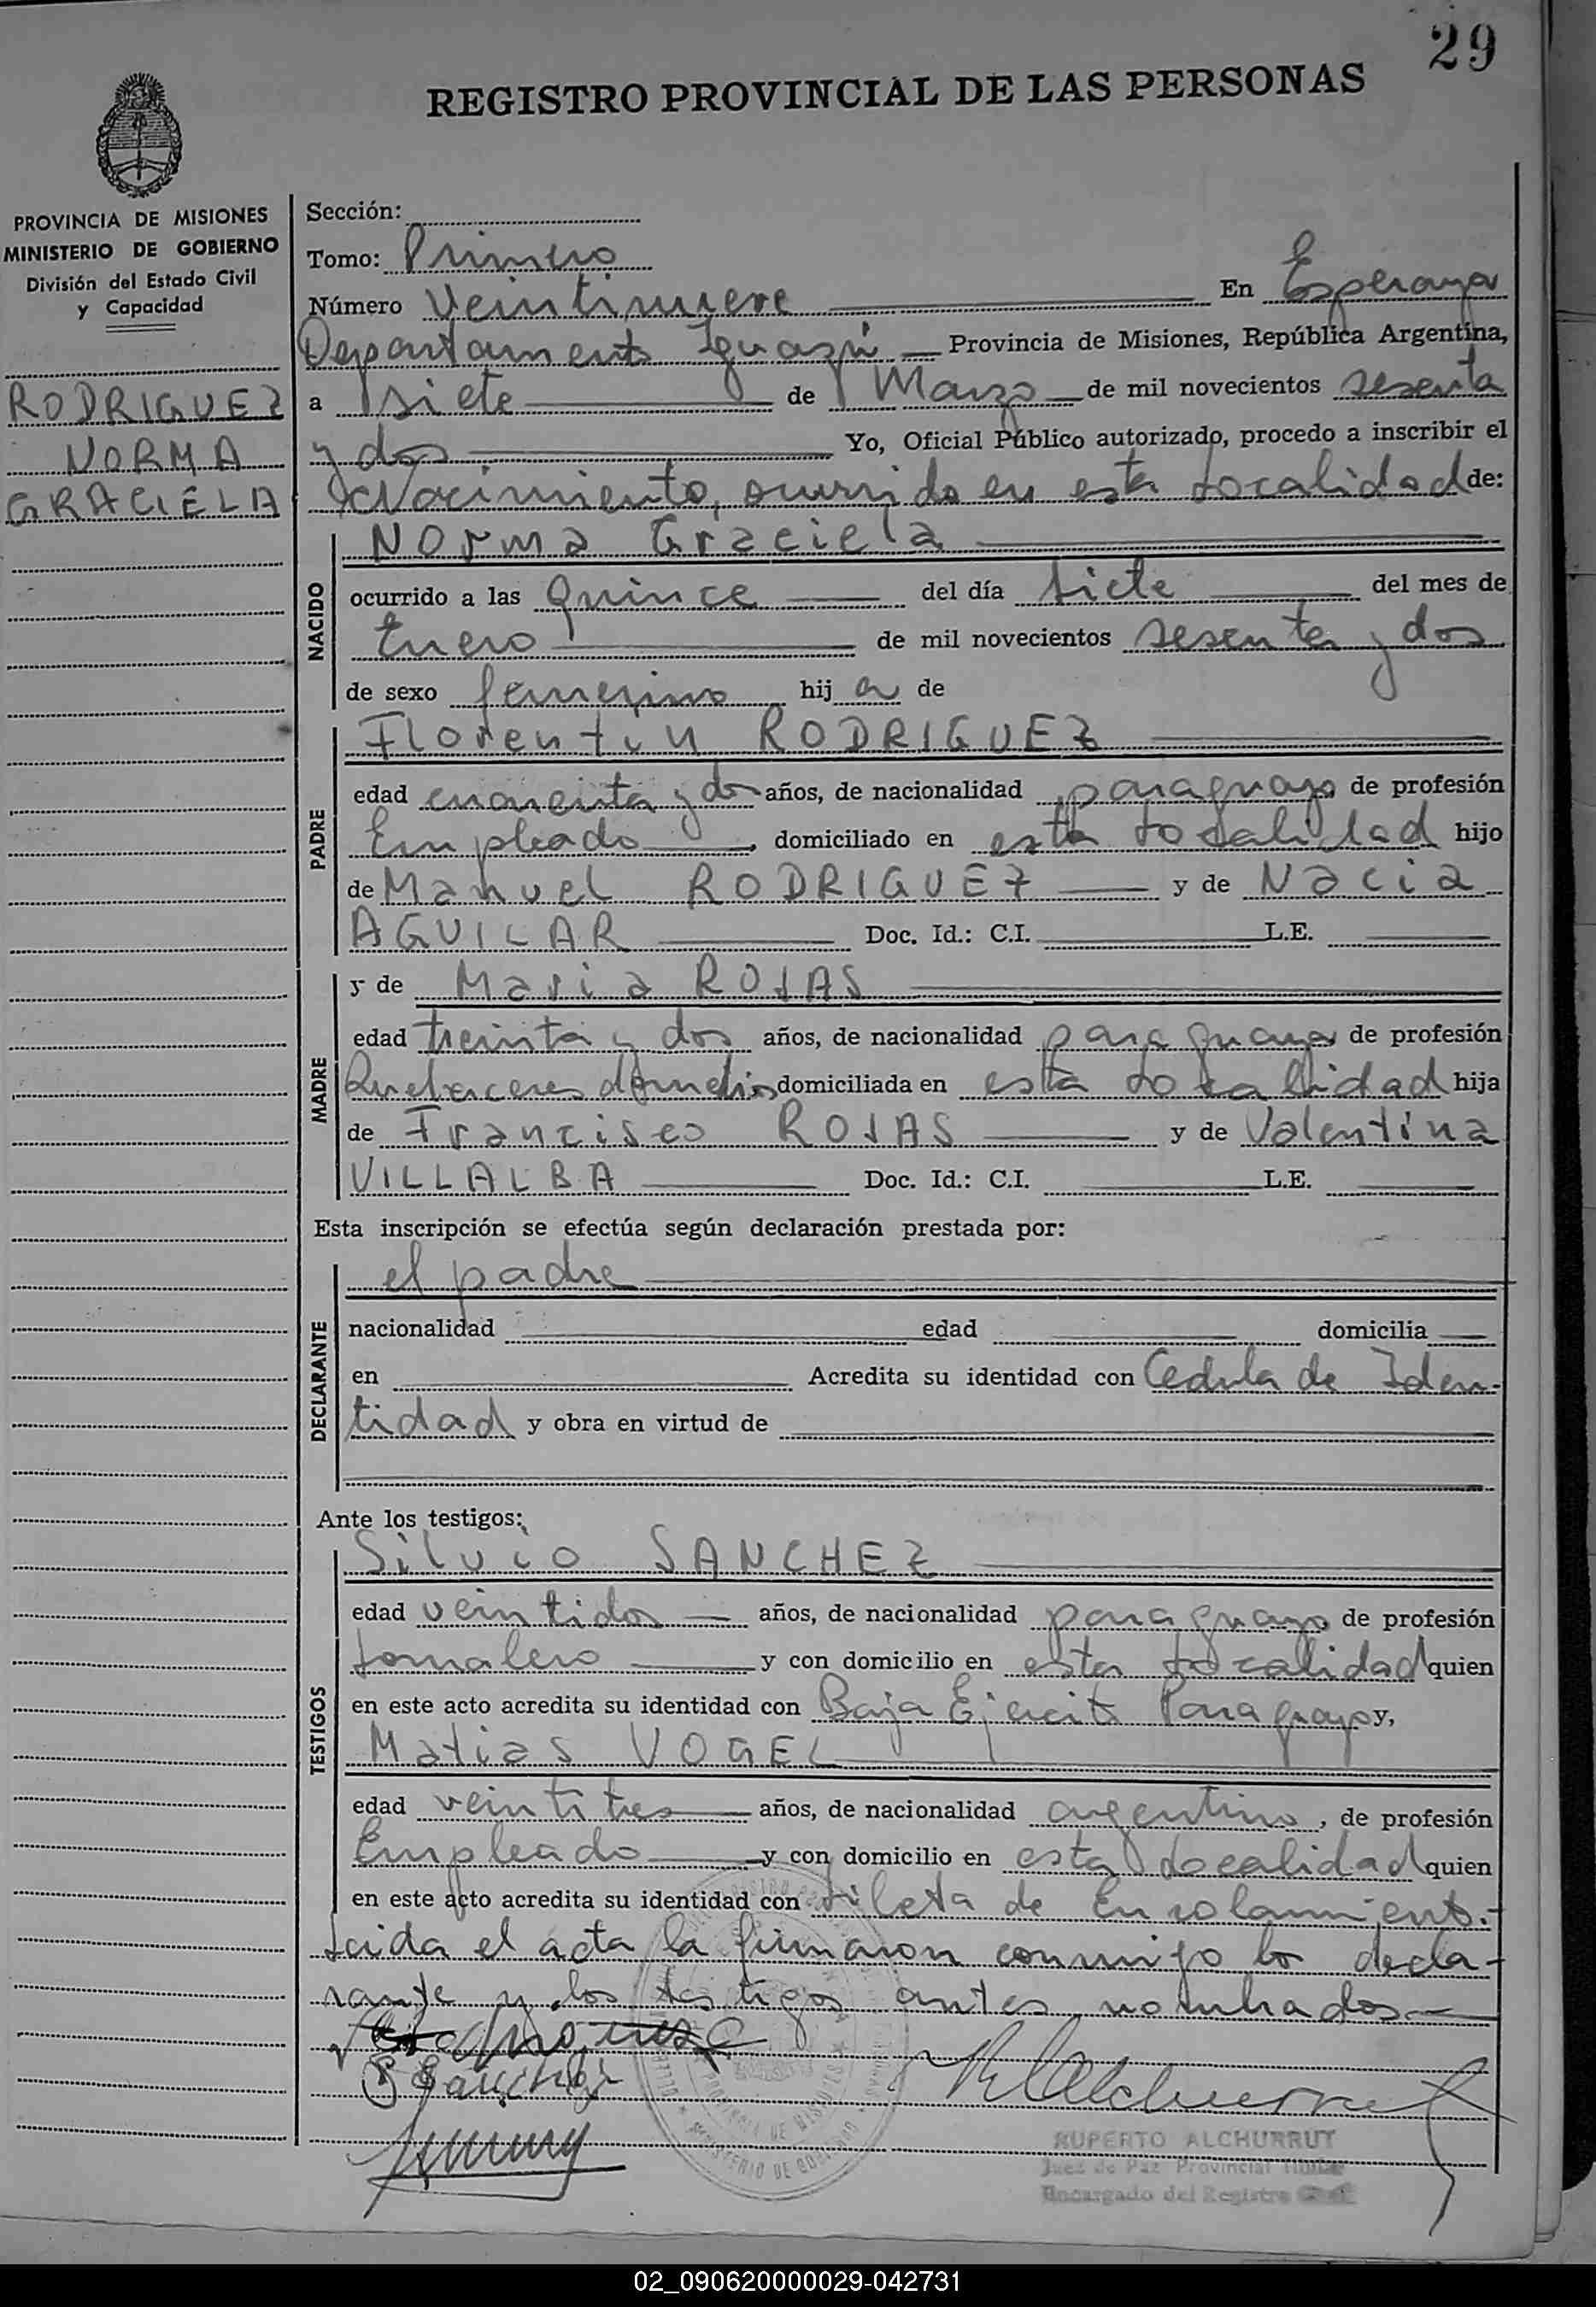 29
REGISTRO PROVINCIAL DE LAS PERSONAS
PROVINCIA DE MISIONES
MINISTERIO DE GOBIERNO
División del Estado Civil
y Capacidad
RODRIGUEZ
NORMA
GRACIELA
Sección:
Tomo: Primero
Número Veintinueve En Esperanza
Departamento Iguazú Provincia de Misiones, República Argentina,
a siete de Marzo de mil novecientos sesenta
y dos Yo, Oficial Público autorizado, procedo a inscribir el
Nacimiento, ocurrido en esta localidad de:
NACIDO
Norma Graciela
ocurrido a las quince del día siete del mes de
Enero de mil novecientos sesenta y dos
de sexo femenino hija de
PADRE
Florentin RODRIGUEZ
edad cuarenta y dos años, de nacionalidad paraguayo de profesión
Empleado, domiciliado en esta localidad hijo
de Manuel RODRIGUEZ y de Nacia
AGUILAR Doc. Id.: C.I. L.E.
MADRE
y de Maria ROJAS
edad treinta y dos años, de nacionalidad paraguaya de profesión
Quehaceres domésticos domiciliada en esta localidad hija
de Francisco ROJAS y de Valentina
VILLALBA Doc. Id.: C.I. L.E.
Esta inscripción se efectúa según declaración prestada por:
DECLARANTE
el padre
nacionalidad edad domicilia
en Acredita su identidad con Cedula de Iden-
tidad y obra en virtud de
Ante los testigos:
TESTIGOS
Silvio SANCHEZ
edad veintidos años, de nacionalidad paraguayo de profesión
Jornalero y con domicilio en esta localidad quien
en este acto acredita su identidad con Baja Ejercito Paraguayo y,
Matias VOGEL
edad veintitres años, de nacionalidad argentino, de profesión
Empleado y con domicilio en esta localidad quien
en este acto acredita su identidad con Libreta de Enrolamiento.-
Leida el acta la firmaron conmigo lo decla-
rante y los testigos antes nombrados
S Sanchez
RAlchurrut
MINISTERIO DE GOBIERNO
PROVINCIA DE MISIONES
RUPERTO ALCHURRUT
Juez de Paz Provincial Titular
Encargado del Registro Civil
02_090620000029-042731